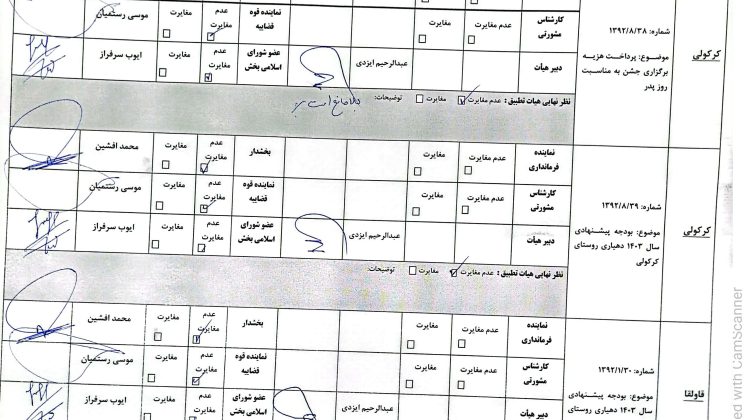 کرکولی
شماره: ۱۳۹۲/۸/۳۸
موضوع: پرداخت هزیه
برگزاری جشن به مناسبت
روز پدر
کارشناس مشورتی
عدم مغایرت
مغایرت
نماینده قوه قضاییه
عدم مغایرت
مغایرت
موسی رستمیان
دبیر هیأت
عبدالرحیم ایزدی
عضو شورای اسلامی بخش
عدم مغایرت
مغایرت
ایوب سرفراز
نظر نهایی هیات تطبیق: عدم مغایرت مغایرت توضیحات:
کرکولی
شماره: ۱۳۹۲/۸/۳۹
موضوع: بودجه پیشنهادی
سال ۱۴۰۳ دهیاری روستای
کرکولی
نماینده فرمانداری
عدم مغایرت
مغایرت
بخشدار
عدم مغایرت
مغایرت
محمد افشین
کارشناس مشورتی
عدم مغایرت
مغایرت
نماینده قوه قضاییه
عدم مغایرت
مغایرت
موسی رستمیان
دبیر هیأت
عبدالرحیم ایزدی
عضو شورای اسلامی بخش
عدم مغایرت
مغایرت
ایوب سرفراز
نظر نهایی هیات تطبیق: عدم مغایرت مغایرت توضیحات:
قاولقا
شماره: ۱۳۹۲/۱/۳۰
موضوع: بودجه پیشنهادی
سال ۱۴۰۳ دهیاری روستای
نماینده فرمانداری
عدم مغایرت
مغایرت
بخشدار
عدم مغایرت
مغایرت
محمد افشین
کارشناس مشورتی
عدم مغایرت
مغایرت
نماینده قوه قضاییه
عدم مغایرت
مغایرت
موسی رستمیان
دبیر هیأت
عبدالرحیم ایزدی
عضو شورای اسلامی بخش
عدم مغایرت
مغایرت
ایوب سرفراز
with CamScanner